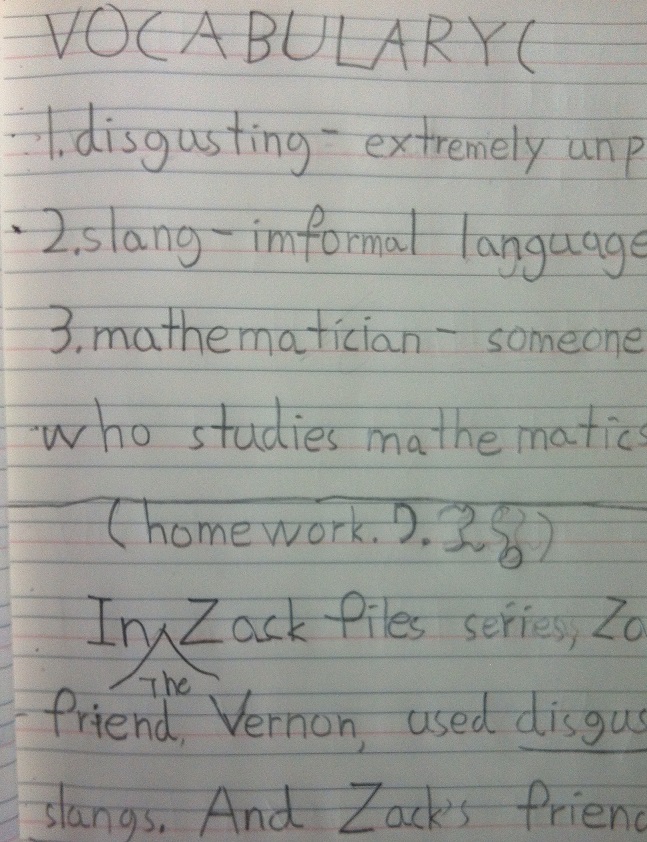 VOCABULARY(
1.disgusting- extremely unp
2.slang- imformal language
3.mathematician- someone
who studies mathematics
(homework.
In Zack files series, Za
The
friend, Vernon, used disgus
slangs. And Zack's friend